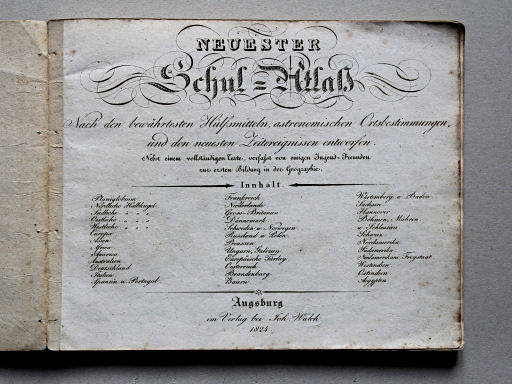 NEUESTER
Schul=Atlaß
Nach den bewährtesten Hülfsmitteln, astronomischen Ortsbestimmungen,
und den neuesten Zeitereignissen entworfen.
Nebst einem vollständigen Texte, verfasst von einigen Jugend-Freunden
zur ersten Bildung in der Geographie.
Innhalt
Planiglobium
Nördliche Halbkugel
Südliche " " "
Oestliche " " "
Westliche " " "
Europa
Asien
Africa
America
Australien
Deutschland
Italien
Spanien u. Portugal
Frankreich
Niederlande
Gross-Britanien
Dännemark
Schweden u. Norwegen
Russland u. Polen
Preussen
Ungarn, Galizien
Europäische Türkey
Oesterreich
Brandenburg
Baiern
Würtemberg u. Baden
Sachsen
Hannover
Böhmen, Mähren
u. Schlesien
Schweiz
Nordamerika
Südamerika
Nordamerikan. Freystaat
Westindien
Ostindien
Aegypten
Augsburg
im Verlag bei Joh. Walch
1824.